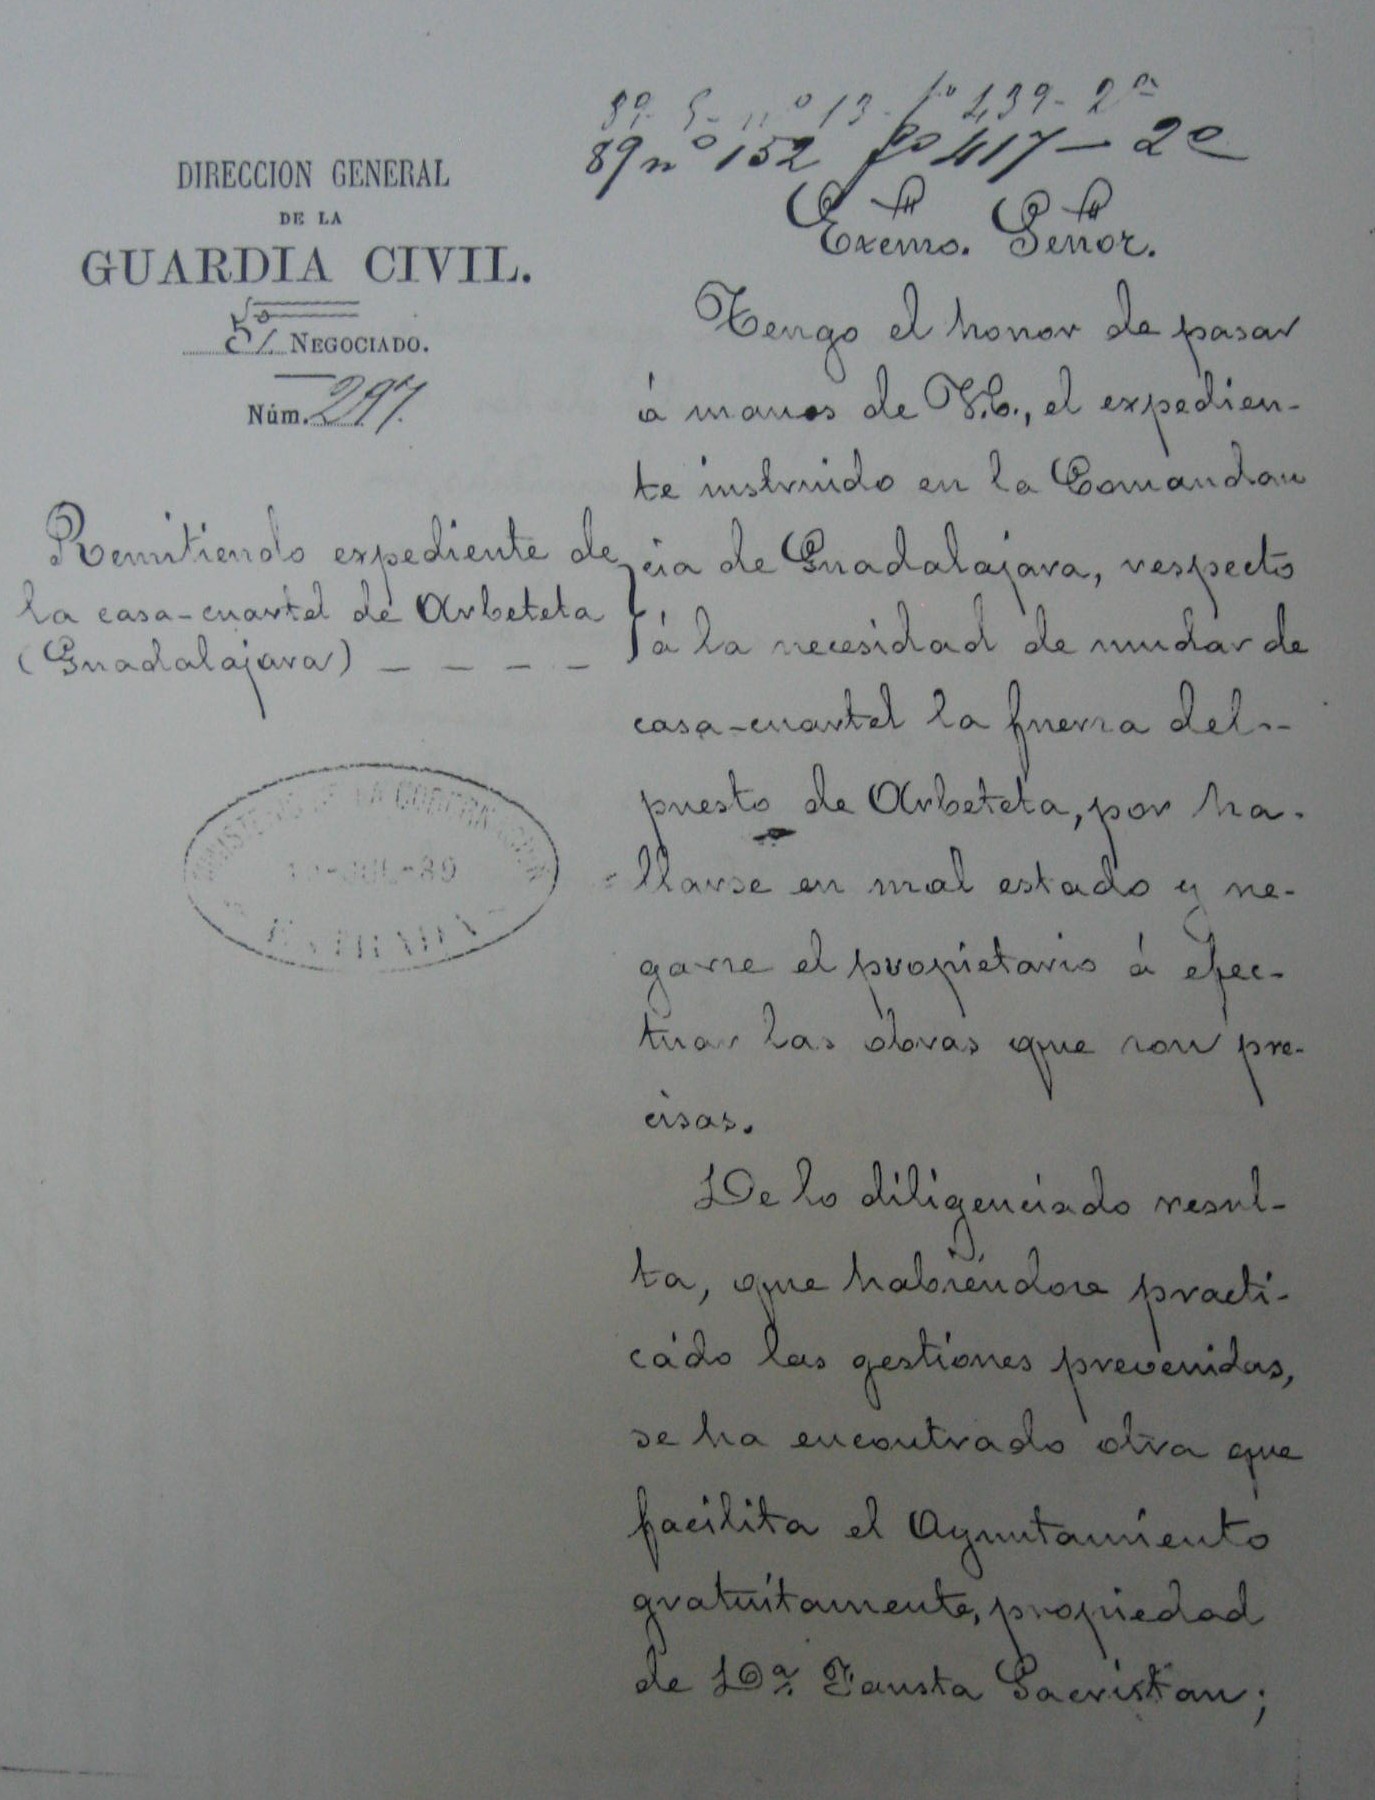 89. 5. nº 13. fº 439 - 2ª
89 nº 152 fº 417 - 2ª
DIRECCION GENERAL
DE LA
GUARDIA CIVIL.
5º NEGOCIADO.
Núm. 297.
Remitiendo expediente de
la casa-cuartel de Arbeteta
(Guadalajara) _ _ _ _
MINISTERIO DE LA GOBERNACION
JUL-89
Excmo. Señor.
Tengo el honor de pasar
á manos de V.E., el expedien-
te instruido en la Comandan
cia de Guadalajara, respecto
á la necesidad de mudar de
casa-cuartel la fuerza del--
puesto de Arbeteta, por ha-
llarse en mal estado y ne-
garse el propietario á efec-
tuar las obras que son pre-
cisas.
De lo diligenciado resul-
ta, que habiéndose practi-
cádo las gestiones prevenidas,
se ha encontrado otra que
facilita el Ayuntamiento
gratuitamente, propiedad
de Dª. Fausta Sacristan;